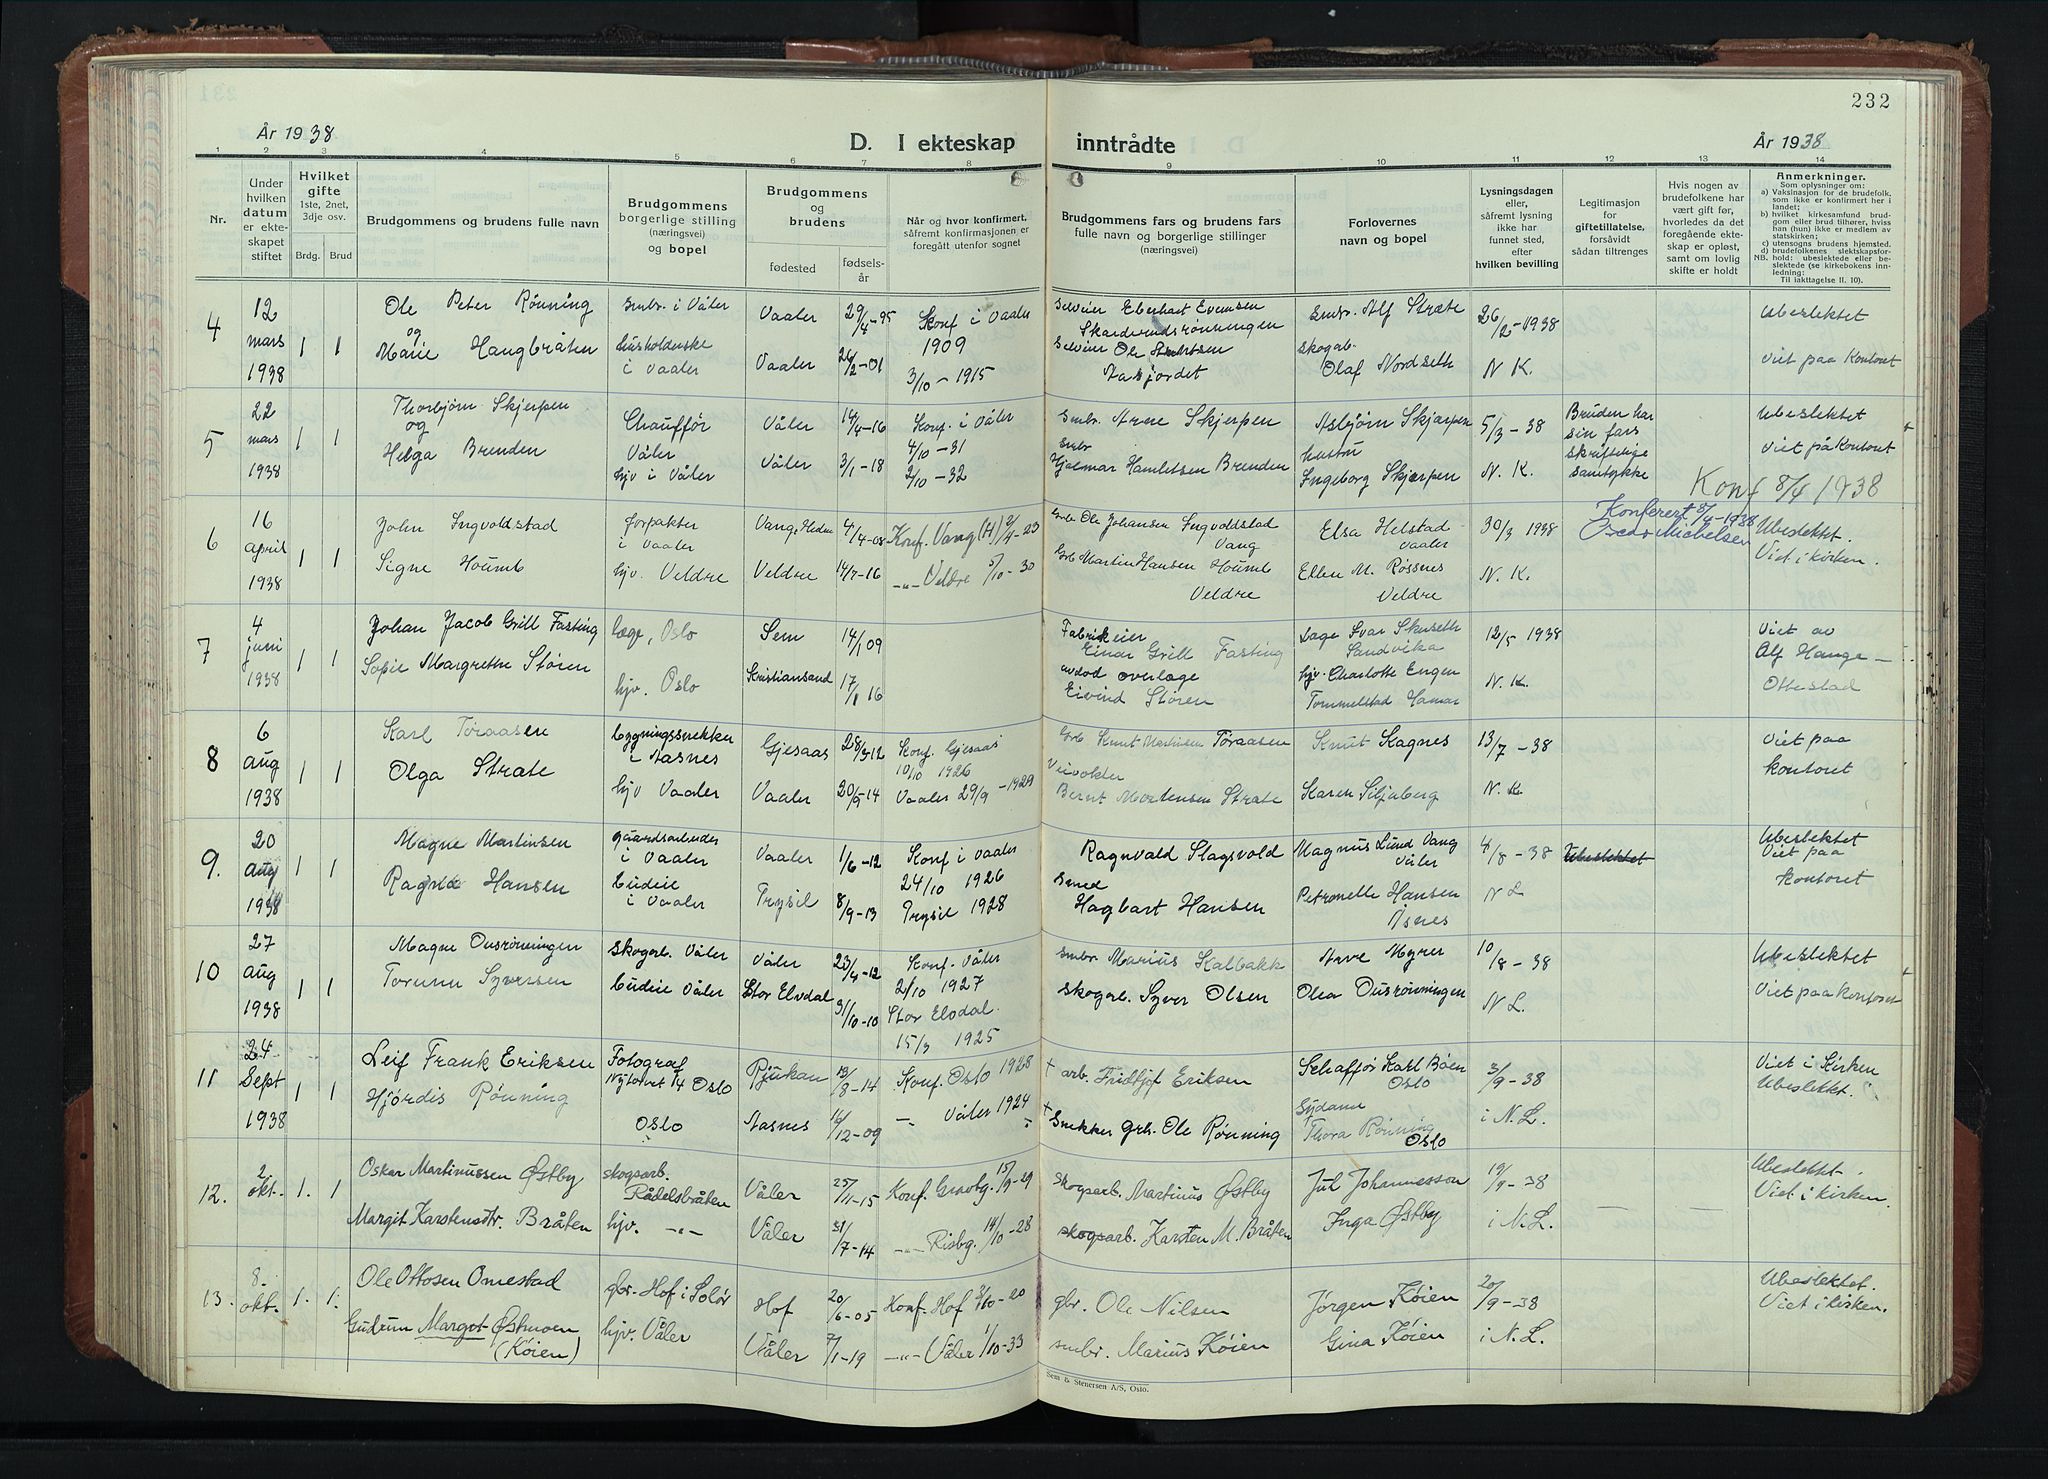 232
År 1938
D. I ekteskap inntrådte
År 1938
1 2 3 4 5 6 7 8 9 10 11 12 13 14
Nr.
Under hvilken datum er ekteskapet stiftet
Hvilket gifte 1ste, 2net, 3dje osv.
Brdg. Brud
Brudgommens og brudens fulle navn
Brudgommens borgerlige stilling (næringsvei) og bopel
Brudgommens og brudens
fødested
fødselsår
Når og hvor konfirmert, såfremt konfirmasjonen er foregått utenfor sognet
Brudgommens fars og brudens fars fulle navn og borgerlige stillinger (næringsvei)
Forlovernes navn og bopel
Lysningsdagen eller, såfremt lysning ikke har funnet sted, efter hvilken bevilling
Legitimasjon for giftetillatelse, forsåvidt sådan tiltrenges
Hvis nogen av brudefolkene har vært gift før, hvorledes da det foregående ekteskap er opløst, samt om lovlig skifte er holdt
Anmerkninger.
Som oplysninger om:
a) Vaksinasjon for de brudefolk, som ikke er konfirmert her i landet;
b) hvilket kirkesamfund brudgom eller brud tilhører, hviss han (hun) ikke er medlem av statskirken;
c) utensogns brudens hjemsted.
d) brudefolkenes slektskapsforhold: ubeslektede eller beslektede (se kirkebokens innledning:
NB.
Til iakttagelse II. 10).
4 12 mars 1938 1 1
Ole Peter Rönning og Smbr. i Våler Vaaler 29/4-95 Konf i Vaaler 1909
Eberhart Evensen Smbr. Alf Stræte 26/2-1938 Ubeslektet
Marie Haugbråten husholderske i Vaaler Vaaler 26/2-01 3/10-1915
Selveier Ole skogarb. Olaf Nordseth N K. Viet paa Kontoret
5 22 mars 1938 1 1
Thorbjørn Skjerpen og Chaufför Våler Våler 14/4-16 Konf. i Våler 4/10-31
Smbr. Arne Skjerpen Asbjørn Skjærpen 5/3-38 Bruden har sin fars skriftelige samtykke Ubeslektet
Helga Brenden hjv i Våler Våler 3/1-18 2/10-32
Smbr Hjalmar Hamletsen Brenden hustru Ingeborg Skjærpen N. K. Viet på Kontoret
Konf 8/4 1938
6 16 april 1938 1 1
John Ingvoldstad forpakter i Vaaler Vang, Hedm 4/4-08 Konf. Vang (H) 2/4-23
Grb Ole Johansen Ingvoldstad Vang Elsa Helstad Vaaler 30/3 1938 Konferert 8/4-1938 Michelsen Ubeslektet.
Signe Houmb hjv. Veldre Veldre 14/7-16 -„- Veldre 5/10-30
Grb Martin Hansen Houmb Veldre Ellen M. Røssnes Veldre N. K. Viet i kirken.
7 4 juni 1938 1 1
Johan Jacob Grill Fasting læge, Oslo Sem 14/1 09
Fabrikeier Einar Grill Fasting Læge Svar Skuseth Sandvika 12/5 1938 Viet av
Sofie Margrethe Stören hjv. Oslo Kristiansand 17/1 16
avdød overlæge Eivind Stören hjv. Charlotte Engen Tommelstad Hamar N. K. Alf Hauge - Ottestad
8 6 aug 1938 1 1
Karl Toraasen bygningssnekker i Aasnes Gjesaas 28/3-12 Konf. Gjesaas 10/10 1926
Grb Knut Martinsen Toraasen Knut Kagnes 13/7-38 Viet paa kontoret
Olga Strate hjv Vaaler Vaaler 20/5-14 Vaaler 29/9-1929
Veivokter Bernt Mortensen Strate Karen Siljuberg N. K.
9. 20 aug 1938 1 1
Magne Martinsen gaardsarbeider i Vaaler Vaaler 1/6-12 Konf i Vaaler 24/10 1926
Ragnvald Slagsvold Magnus Lund Vang Våler 4/8-38 Ubeslektet Ubeslektet Viet paa kontoret
Ragna Hansen budeie i Vaaler Trysil 8/9-13 Trysil 1928
Smed Hagbart Hansen Petronelle Hansen Åsnes N L
10 27 aug 1938 1 1
Magne Ousrønningen skogarb. Våler Våler 23/4-12 Konf. Våler 2/10 1927
Smbr Marius Kalbakk Aave Myrer 10/8-38 Ubeslektet
Torunn Syversen budeie Våler Stor Elvdal 31/10-10 Stor Elvdal. 15/3 1925
Skogarb. Syver Olsen Olea Ousrønningen N L. Viet paa kontoret
11 24 Sept 1938 1 1
Leif Frank Eriksen Fotograf Nytorvet 14 Oslo Rjukan 13/8-14 Konf. Oslo 1928
+ arb. Fridtjof Eriksen Schafför Karl Bøen Oslo 3/9-38 Viet i Kirken
Hjördis Rönning Oslo Aasnes 14/12-09 - Våler 1924
+ Snekker Grb. Ole Rønning Sydame Thora Rønning Oslo i N. L. Ubeslekt.
12. 2 okt. 1. 1
Oskar Martinussen Østby skogsarb. Rådelsbråten Våler 25/11-15 Konf. Gravbg. 15/9-29
skogsarb. Martinus Østby Jul Johannesson 19/9-38 Ubeslektet.
Margit Karstensdtr. Bråten hjv. -„- Våler 31/7-14 -„- Risbg. 14/10-28
skogsarb. Karsten M. Bråten Inga Østby i N. L. Viet i kirken.
13. 8. okt. 1. 1.
Ole Ottosen Omestad gbr. Hof i Solør Hof 20/6-05 Konf. Hof 3/10-20
gbr. Ole Nilsen Jörgen Köien 20/9-38 Ubeslektet.
Gudrun Margot Østmoen (Köien) hjv. Våler Våler 7/1-19 -„- Våler 1/10-33
smbr. Marius Köien Gina Köien i N. L. Viet i kirken.
Sem & Stenersen A/S, Oslo.